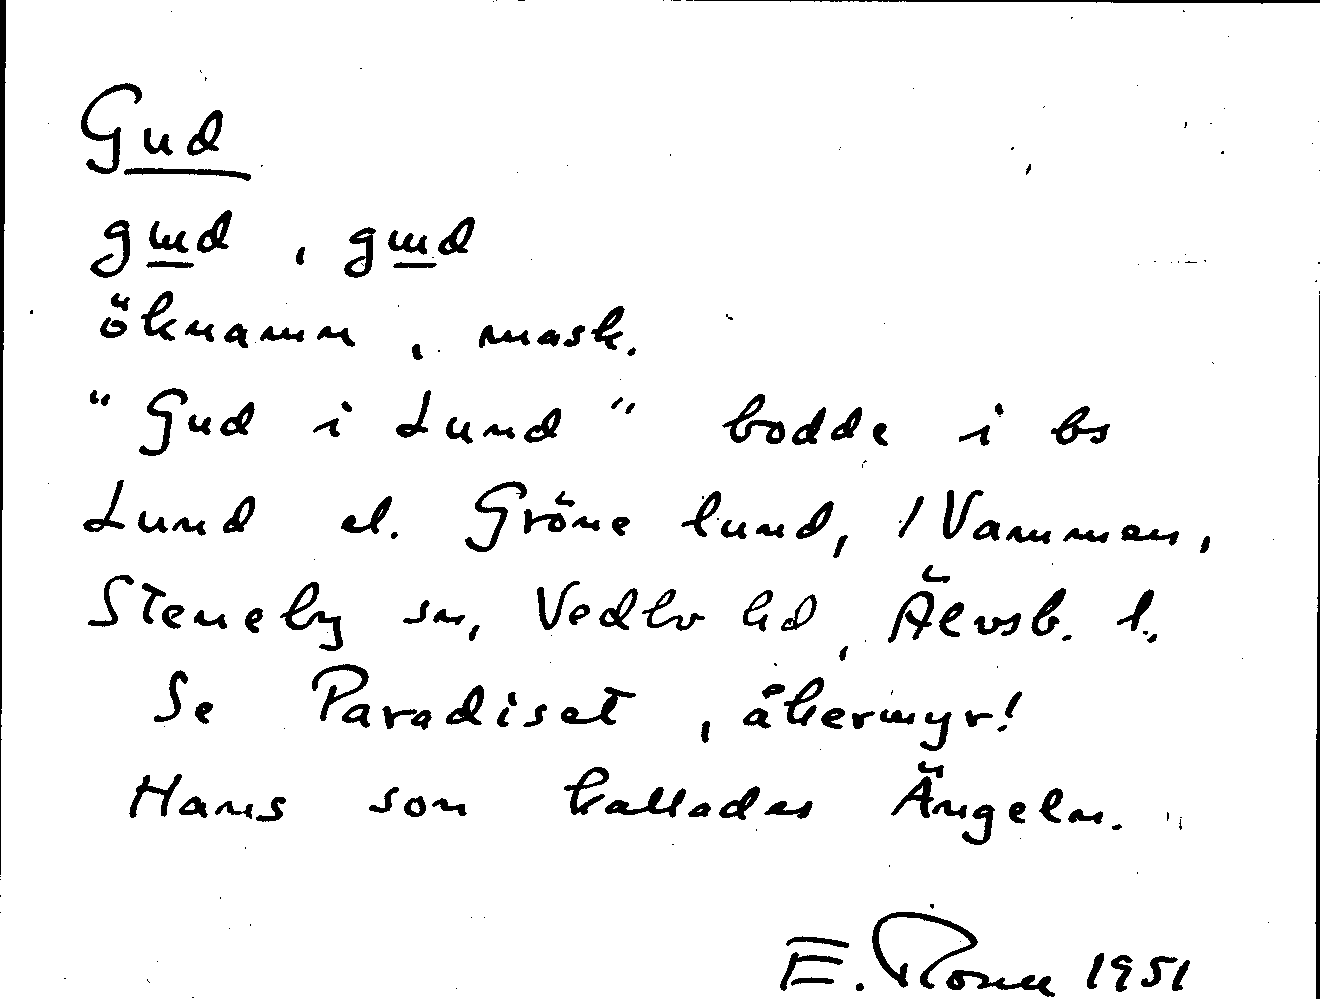 Gud
gɯd, gɯd
öknamn, mask.
"Gud i Lund" bodde i bs
Lund el. Gröne lund, 1 Vammen,
Steneby sn, Vedbo hd, Älvsb. l.
Se Paradiset, åkermyr!
Hans son kallades Ängeln.
E. 1951